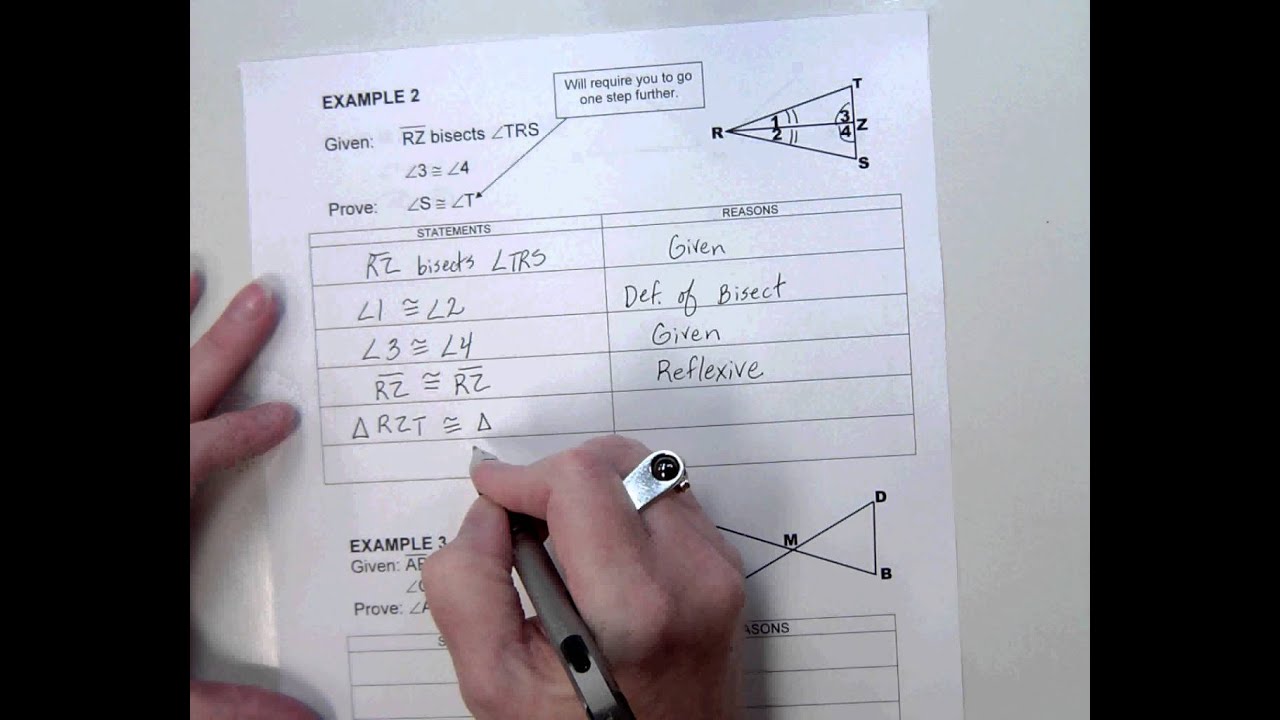 EXAMPLE 2
Will require you to go
one step further.
Given: R̅Z̅ bisects ∠TRS
∠3 ≅ ∠4
Prove: ∠S ≅ ∠T
T
R
1
2
3
4
Z
S
STATEMENTS REASONS
R̅Z̅ bisects ∠TRS Given
∠1 ≅ ∠2 Def. of Bisect
∠3 ≅ ∠4 Given
R̅Z̅ ≅ R̅Z̅ Reflexive
Δ RZT ≅ Δ
EXAMPLE 3
Given:
Prove:
D
M
B